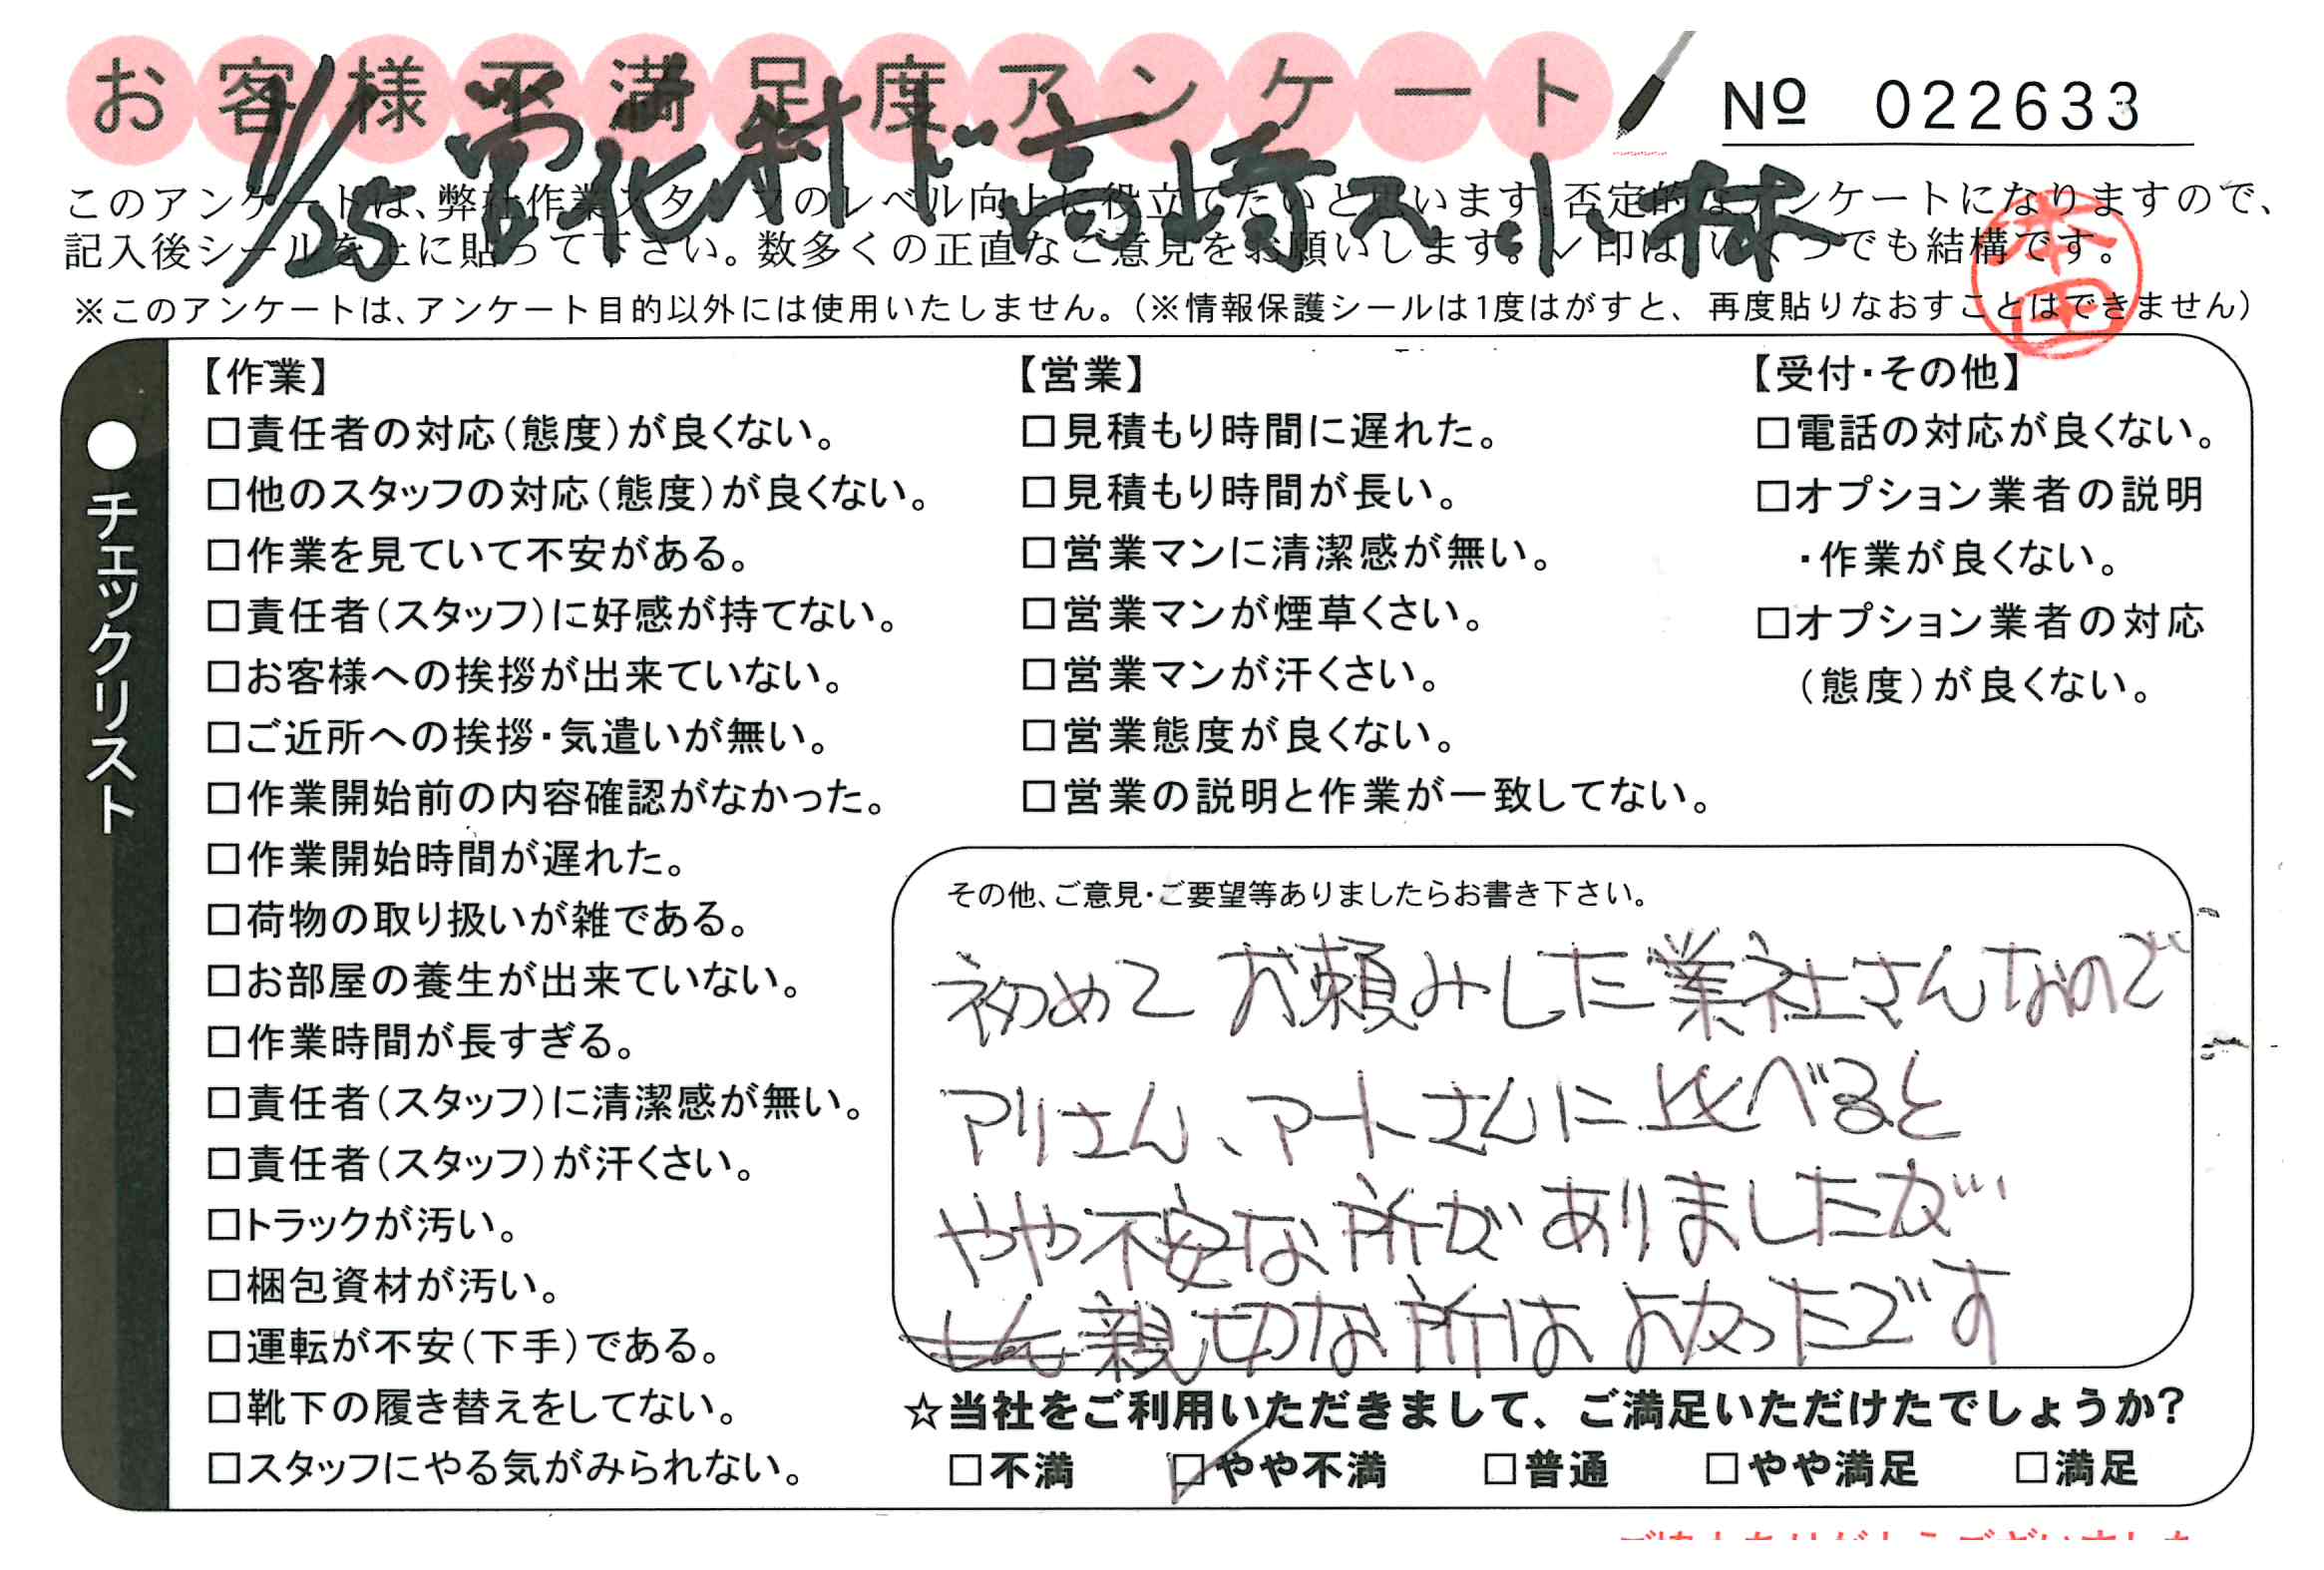 お客様不満足度アンケート
№ 022633
11/25 宮化 村ド 高崎ス 小林
このアンケートは、弊社作業スタッフのレベル向上に役立てたいと思います。否定的なアンケートになりますので、
記入後シールを上に貼って下さい。数多くの正直なご意見をお願いします。✓印は、いくつでも結構です。
本田
※このアンケートは、アンケート目的以外には使用いたしません。（※情報保護シールは1度はがすと、再度貼りなおすことはできません）
●チェックリスト
【作業】
□責任者の対応（態度）が良くない。
□他のスタッフの対応（態度）が良くない。
□作業を見ていて不安がある。
□責任者（スタッフ）に好感が持てない。
□お客様への挨拶が出来ていない。
□ご近所への挨拶・気遣いが無い。
□作業開始前の内容確認がなかった。
□作業開始時間が遅れた。
□荷物の取り扱いが雑である。
□お部屋の養生が出来ていない。
□作業時間が長すぎる。
□責任者（スタッフ）に清潔感が無い。
□責任者（スタッフ）が汗くさい。
□トラックが汚い。
□梱包資材が汚い。
□運転が不安（下手）である。
□靴下の履き替えをしてない。
□スタッフにやる気がみられない。
【営業】
□見積もり時間に遅れた。
□見積もり時間が長い。
□営業マンに清潔感が無い。
□営業マンが煙草くさい。
□営業マンが汗くさい。
□営業態度が良くない。
□営業の説明と作業が一致してない。
【受付・その他】
□電話の対応が良くない。
□オプション業者の説明
・作業が良くない。
□オプション業者の対応
（態度）が良くない。
その他、ご意見・ご要望等ありましたらお書き下さい。
初めてお頼みした業社さんなので
アリさん、アートさんに比べると
やや不安な所がありましたが…
親切な所はよかったです
☆当社をご利用いただきまして、ご満足いただけたでしょうか?
□不満 ☑やや不満 □普通 □やや満足 □満足